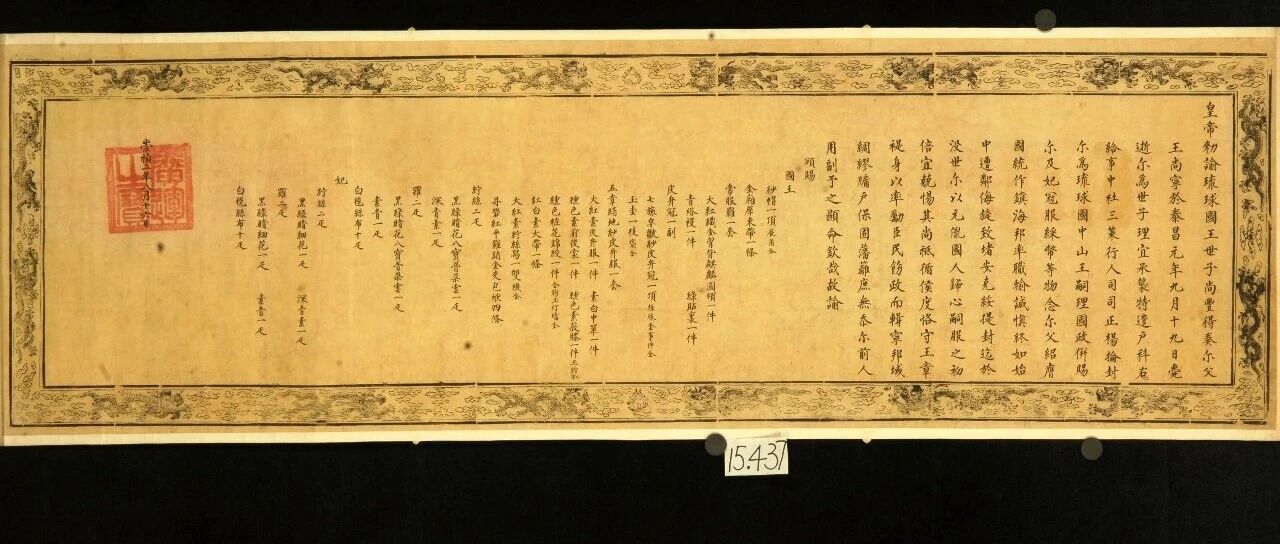 皇帝勑諭琉球國王世子尚豐得奏尔父
王尚寧於泰昌元年九月十九日薨
逝尔為世子理宜承襲特遣户科右
給事中杜三策行人司司正楊掄封
尔為琉球國中山王嗣理國政併賜
尔及妃冠服綵幣等物念尔父紹膺
國統作鎮海邦率職輸誠慎終如始
中遭鄰侮旋致堵安克綏提封迄於
没世尔以元儲國人歸心嗣服之初
倍宜兢惕其尚祗循侯度恪守王章
禔身以率勤臣民飭政而輯寧邦域
綢繆牖户保固藩籬庶無忝尔前人
用副予之顯命欽哉故諭
頒賜
國王
紗帽一頂展角全
金廂犀束帶一條
常服羅一套
大紅織金胷背麒麟圓領一件
青褡䕶一件 綠貼裏一件
皮弁冠一副
七旒皂皺紗皮弁冠一頂旒珠金事件全
玉圭一枝袋全
五章絹地紗皮弁服一套
大紅素皮弁服一件 素白中單一件
纁色素前後裳一件 纁色素蔽膝一件玉鈎全
纁色粧花錦綬一件金鈎玉玎璫全
紅白素大帶一條
大紅素紵絲舄一雙襪全
丹礬紅平羅銷金夾包袱四條
紵絲二疋
黑綠暗花八寶骨朵雲一疋
深青素一疋
羅二疋
黑綠暗花八寶骨朵雲一疋
青素一疋
白㲲絲布十疋
妃
紵絲二疋
黑綠暗細花一疋 深青素一疋
羅二疋
黑綠暗細花一疋 素青一疋
白㲲絲布十疋
崇禎二年八月十六日
廣運之寶
15.437